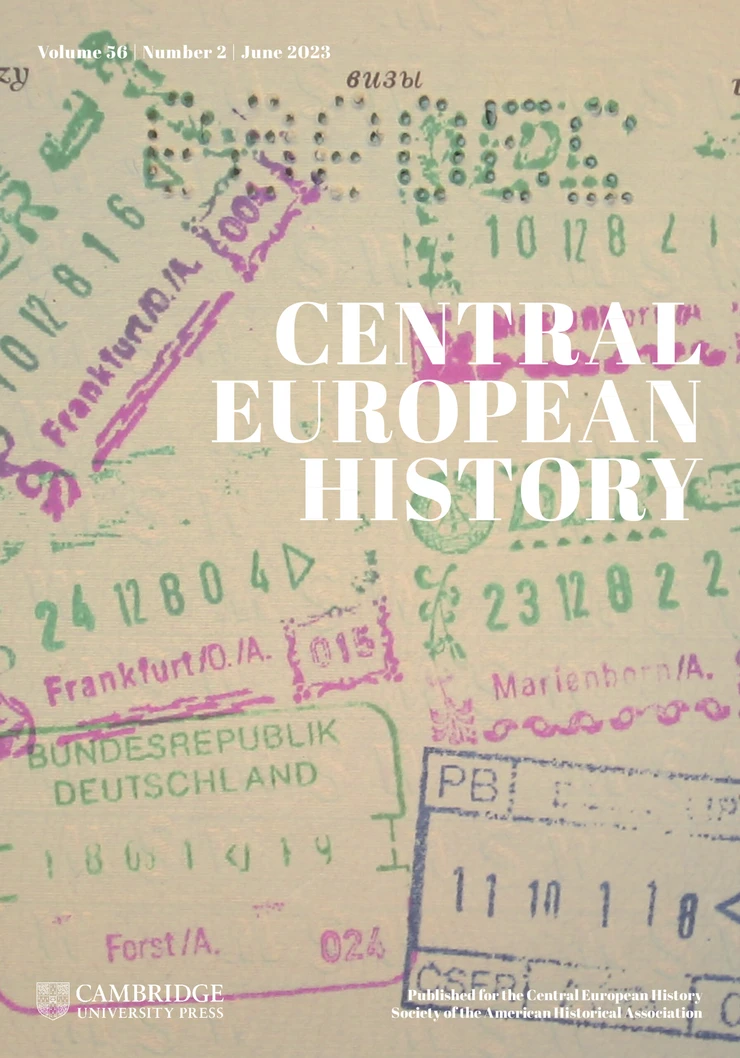 Volume 56 | Number 2 | June 2023
визы
10 12 8 1 6
004
Frankfurt/O./A.
10 12 8
CENTRAL
EUROPEAN
HISTORY
24 12 80 4
23 12 8 2 2
015
Frankfurt/O./A.
Marienborn/A.
BUNDESREPUBLIK
DEUTSCHLAND
PB
11 10 1 1 8
Forst/A.
024
CAMBRIDGE
UNIVERSITY PRESS
Published for the Central European History
Society of the American Historical Association